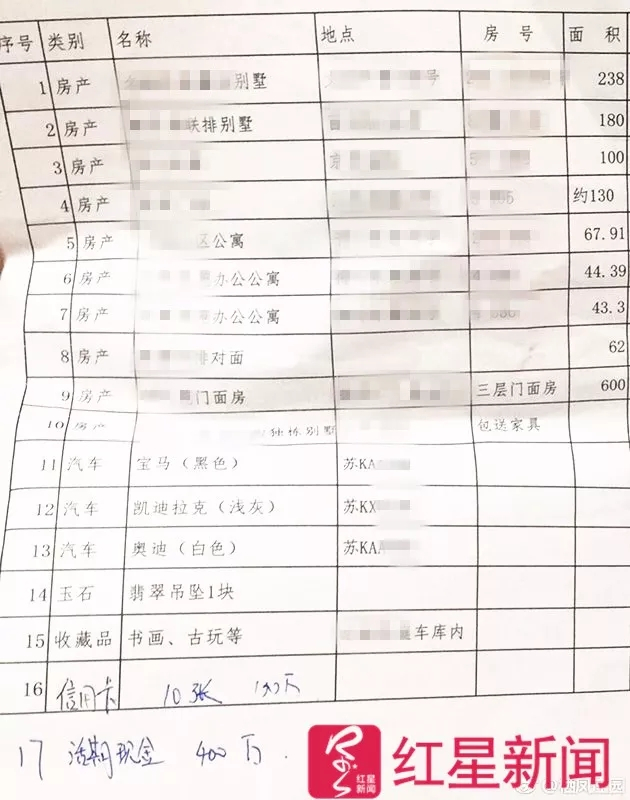 序号 类别 名称 地点 房号 面积
1 房产 别墅 号 238
2 房产 联排别墅 180
3 房产 100
4 房产 约130
5 房产 区公寓 67.91
6 房产 办公公寓 44.39
7 房产 办公公寓 43.3
8 房产 对面 62
9 房产 门面房 三层门面房 600
10 房产 独栋别墅 包送家具
11 汽车 宝马（黑色） 苏KA
12 汽车 凯迪拉克（浅灰） 苏KX
13 汽车 奥迪（白色） 苏KAA
14 玉石 翡翠吊坠1块
15 收藏品 书画、古玩等 车库内
16 信用卡 10张
17 活期现金 400万.
红星新闻
红星新闻